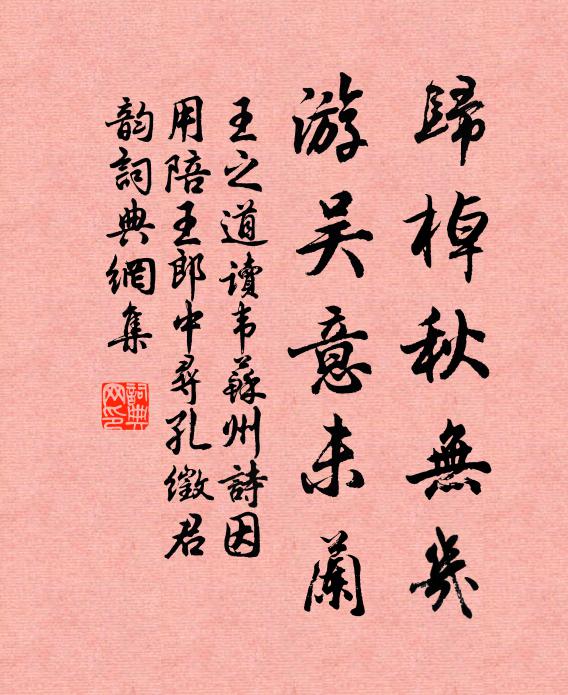 歸棹秋無幾
游吴意未闌
王之道讀韦蘇州詩因
用陪王郎中尋孔徵君
韵詞典網集
詞典
网印